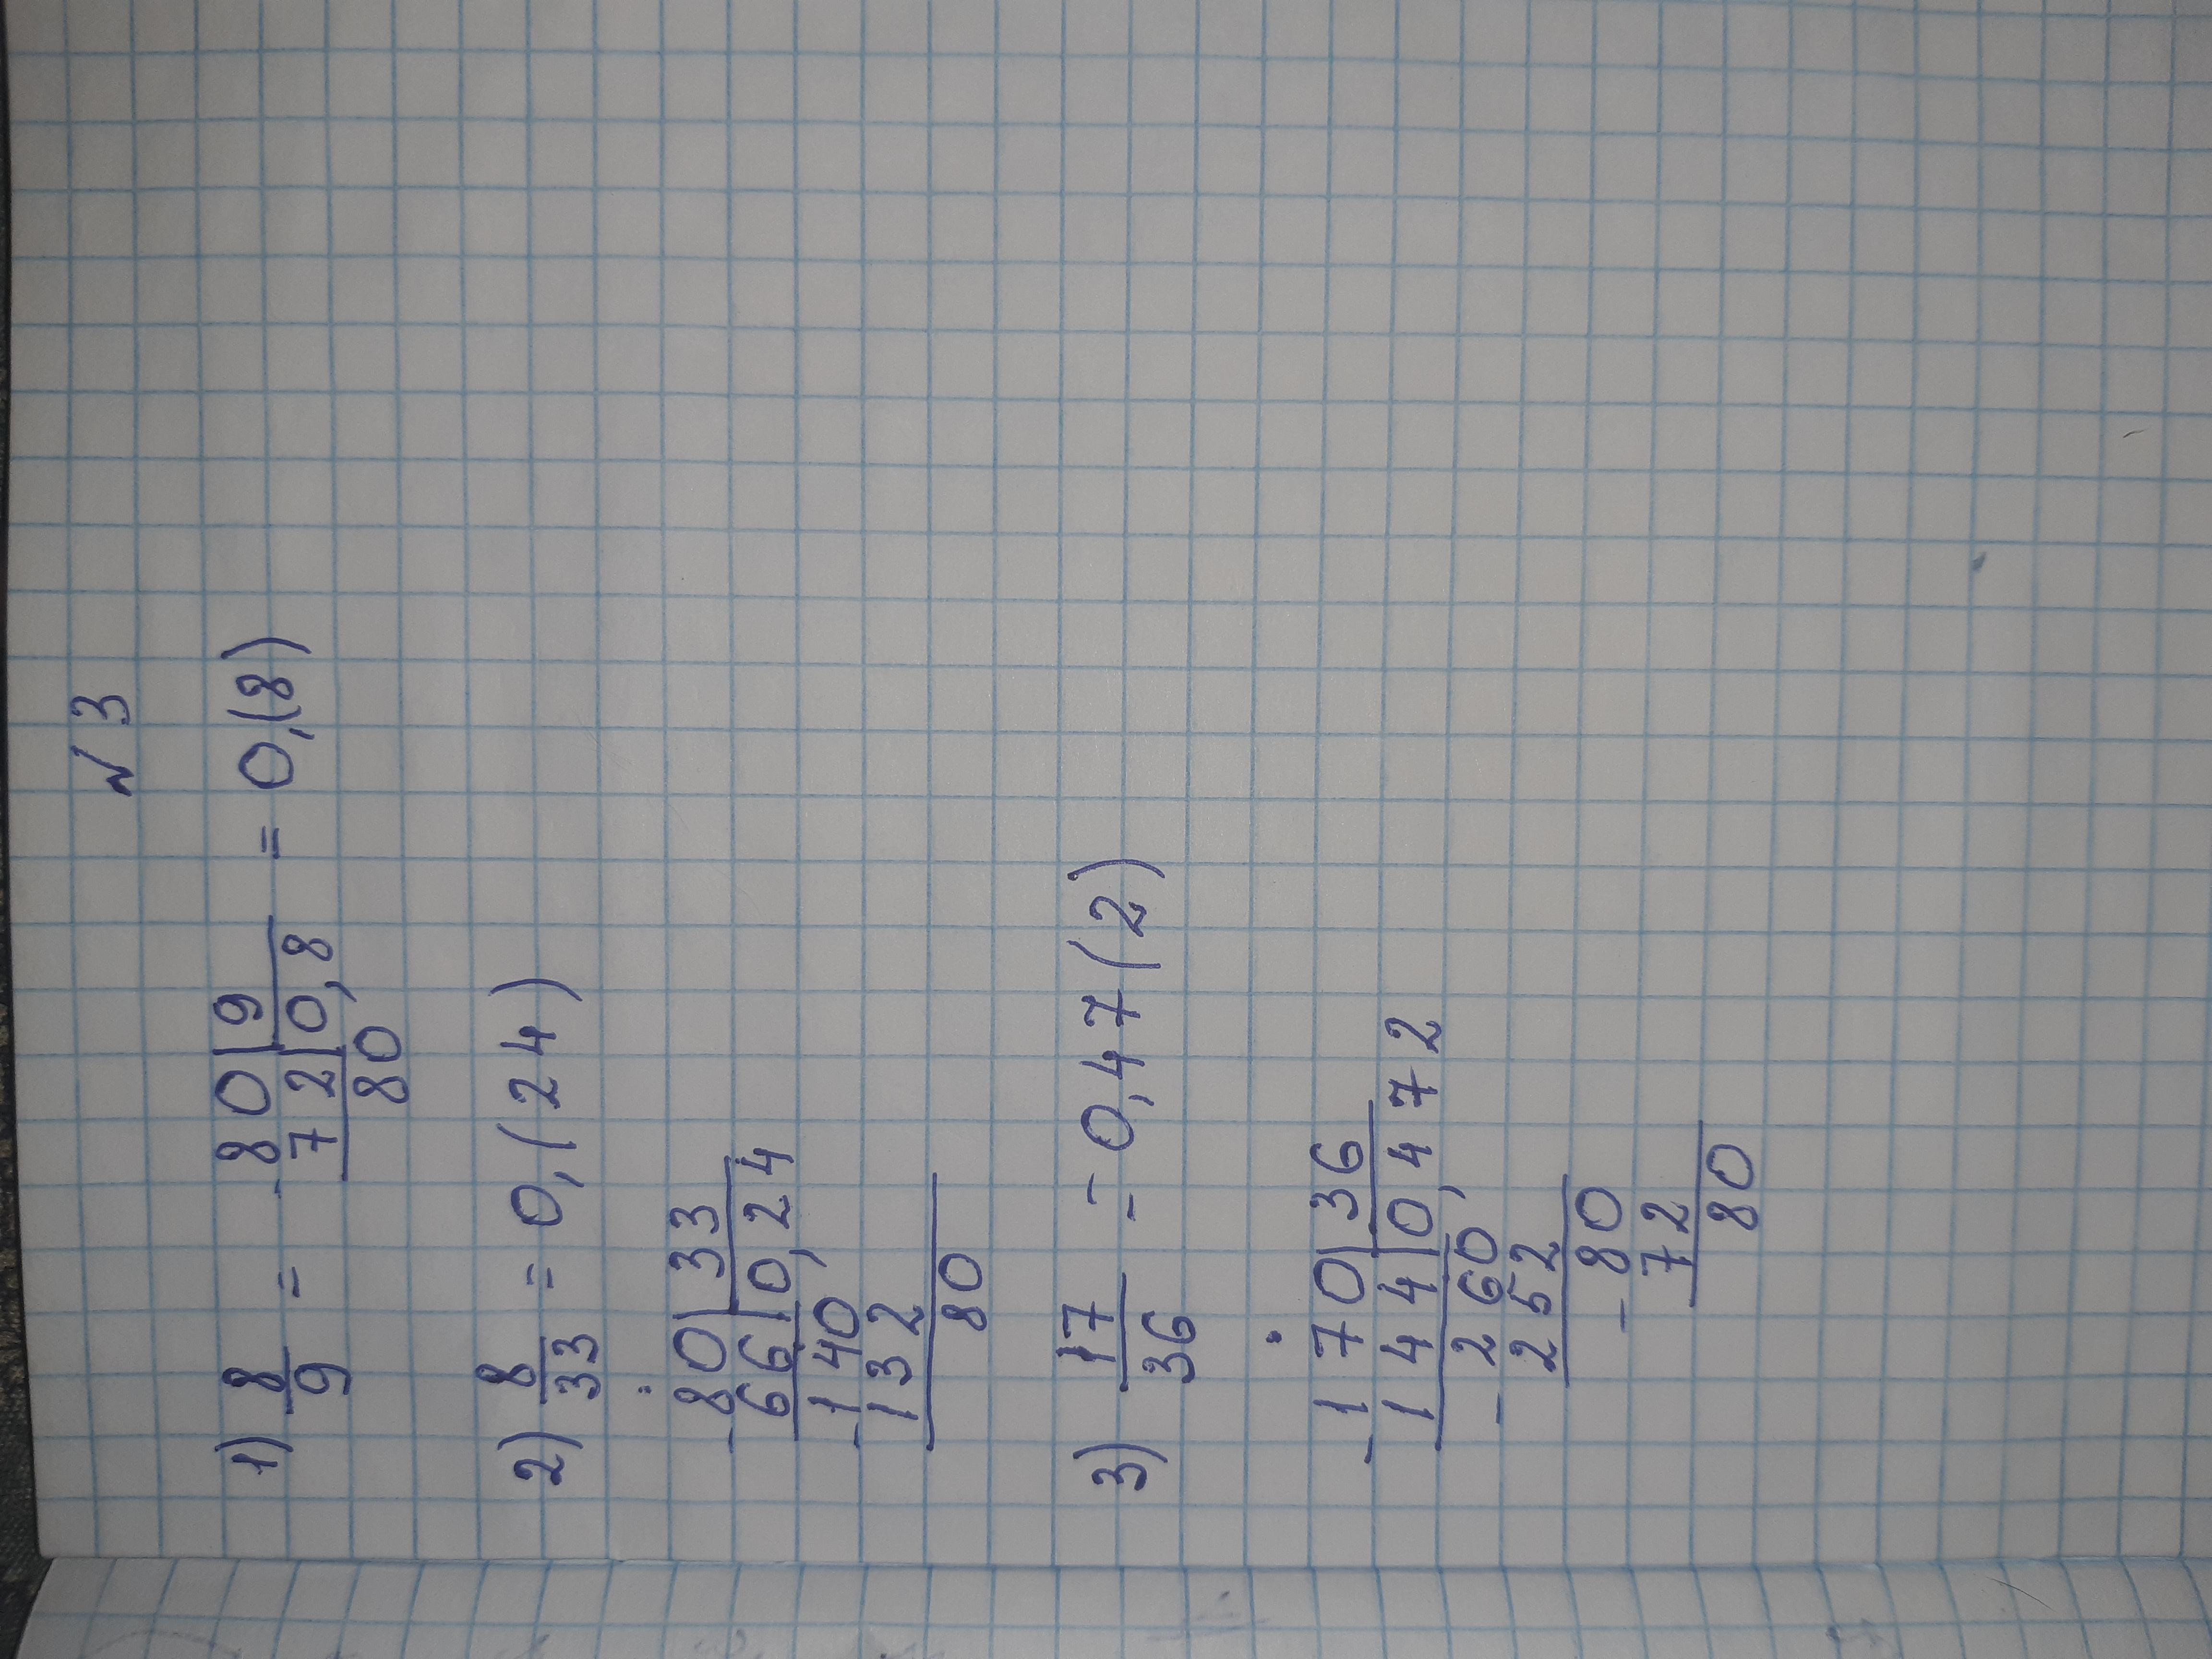 № 3
1) 8/9 = -80|9 = 0,(8)
72|0,8
80
2) 8/33 = 0,(24)
-80|33
66|0,24
-140
132
80
3) 17/36 = 0,47(2)
-170|36
144|0,472
-260
252
-80
72
80